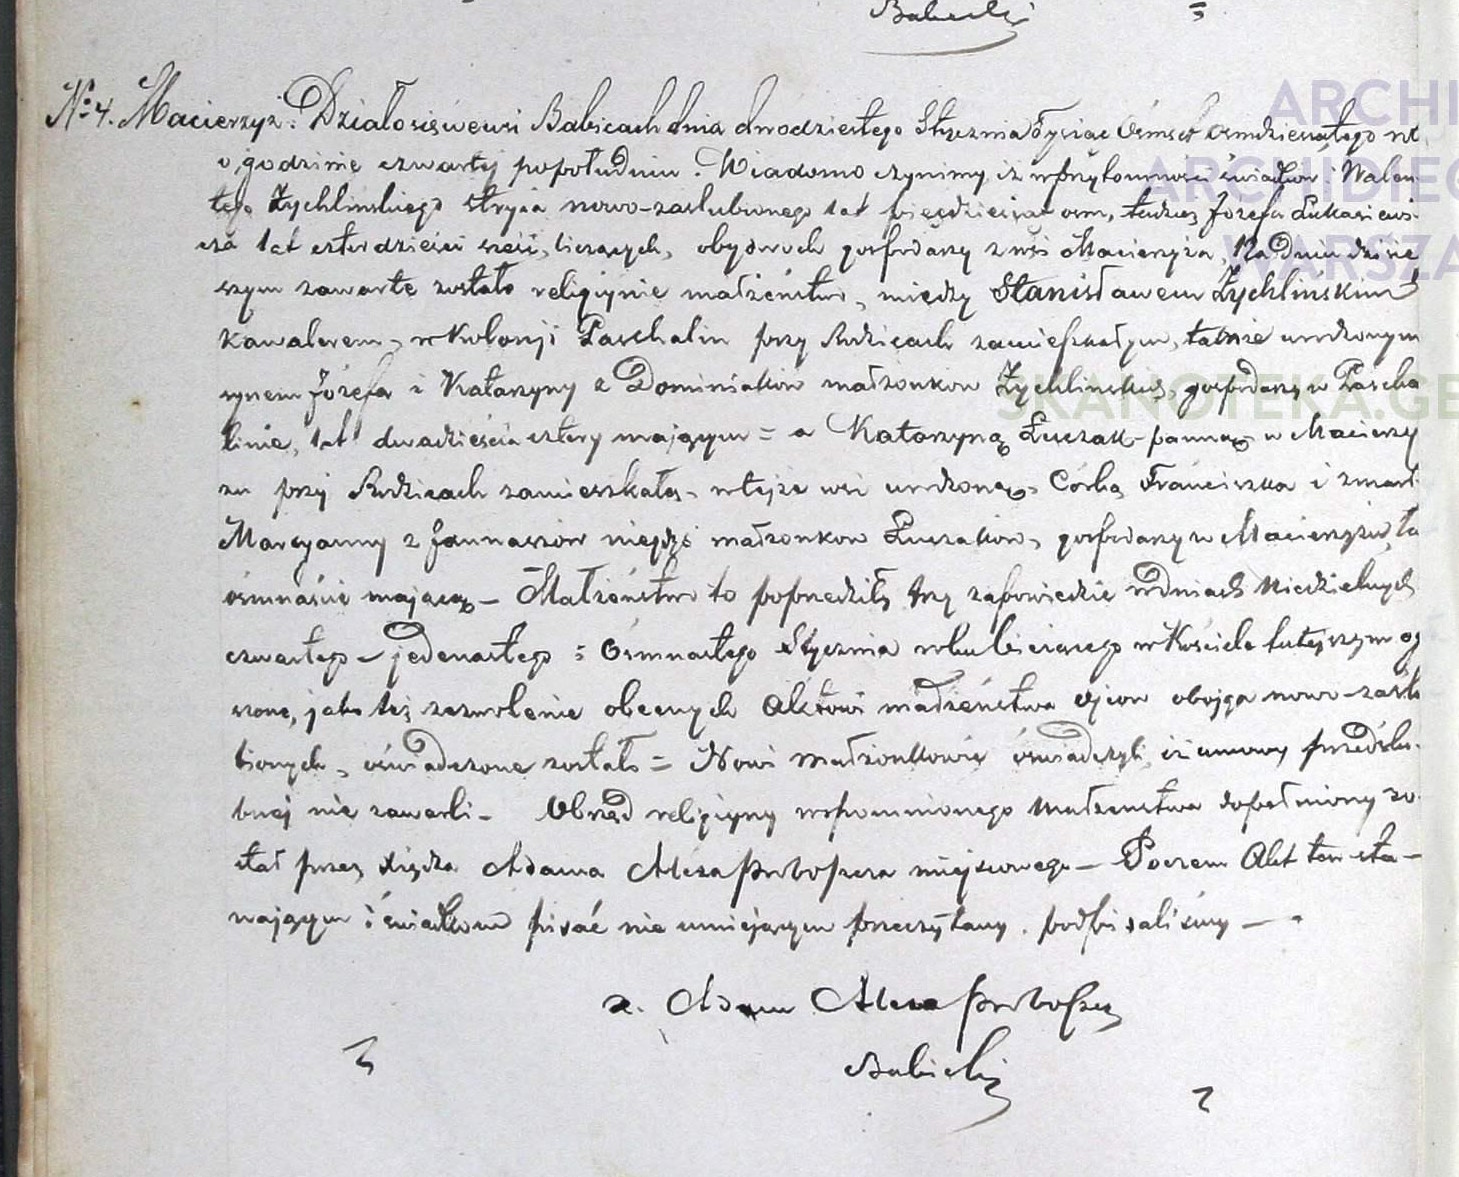 Babicki
ARCHI
ARCHIDIE
WARSZA
SKANOTEKA.GE
No 4. Macierzyż. Działo się we wsi Babicach dnia dwudziestego Stycznia Tysiąc Ośmset ośmdziesiątego
o godzinie czwartej popołudniu. Wiadomo czynimy, iż w przytomności świadków: Walen
tego Żychlinskiego stryja nowo-zaślubionego lat pięśdziesiąt ośm, tudzież Józefa Łukasiewi
cza lat czterdzieści sześć, liczących, obydwoch gospodarzy z wsi Macierzyża, Na dniu dzisie
szym zawarte zostało religijnie małżeństwo, między Stanisławem Żychlińskim
kawalerem, w Kolonji Paschalin przy Rodzicach zamieszkałym, tamże urodzonym
synem Józefa i Katarzyny z Dominiaków małżonkow Żychlinskich, gospodarzy w Pascha
linie, lat dwadzieścia cztery mającym = a Katarzyną Łuczak panną w Macierzy
żu przy Rodzicach zamieszkałą, w tejże wsi urodzoną, Córką Franciszka i zmarł
Maryanny z Jannaszów niegdyś małżonkow Łuczaków, gospodarzy w Macierzyżu, la
ośmnaście mającą - Małżeństwo to poprzedziły trzy zapowiedzie w dniach Niedzielnych
czwartego - jedenastego i Ośmnastego Stycznia roku bieżącego w Kościele tutejszym og
szone, jako też zezwolenie obecnych Aktowi małżeństwa ojców obojga nowo-zaślu
bionych, oświadczone zostało = Nowi małżonkowie oświadczyli, iż umowy przedślu
bnej nie zawarli - Obrzęd religijny wspomnionego małżeństwa dopełniony zo
stał przez Księdza Adama Proboszcza miejscowego - Poczem Akt ten sta-
wającym i świadkom pisać nie umiejącym przeczytany, podpisaliśmy -
x. Adam Proboszcz
Babicki